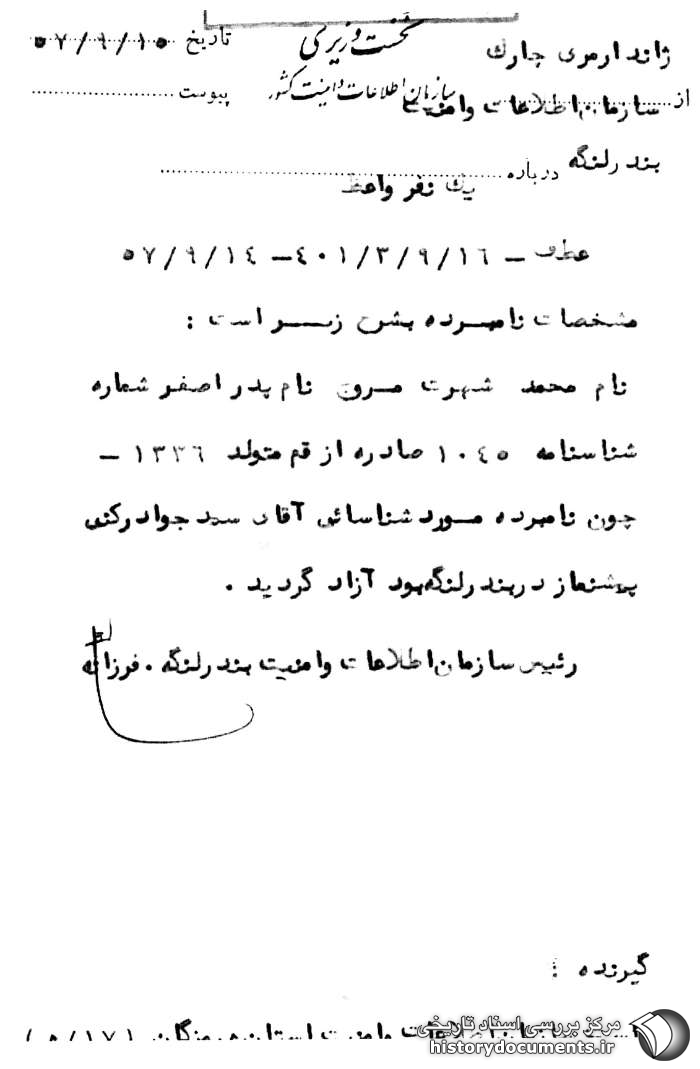 نخست وزیری
ژاندارمری چارک
تاریخ ۵۷/۹/۱۵
سازمان اطلاعات و امنیت کشور
از سازمان اطلاعات و امنیت
پیوست
بندرلنگه
درباره یک نفر واعظ
عطف ـ ۴۰۱/۳/۹/۱۶ـ ۵۷/۹/۱۴
مشخصات نامبرده بشرح زیر است :
نام محمد شهرت نام پدر اصغر شماره
شناسنامه ۱۰۴۵ صادره از قم متولد ۱۳۳۶ ـ
چون نامبرده مورد شناسائی آقای سید جواد رکنی
پیشنماز دربندرلنگه بود آزاد گردید .
رئیس سازمان اطلاعات و امنیت بندرلنگه . فرزانه
گیرنده :
اطلاعات و امنیت استان هرمزگان (۵/۱۷)
مرکز بررسی اسناد تاریخی
historydocuments.ir